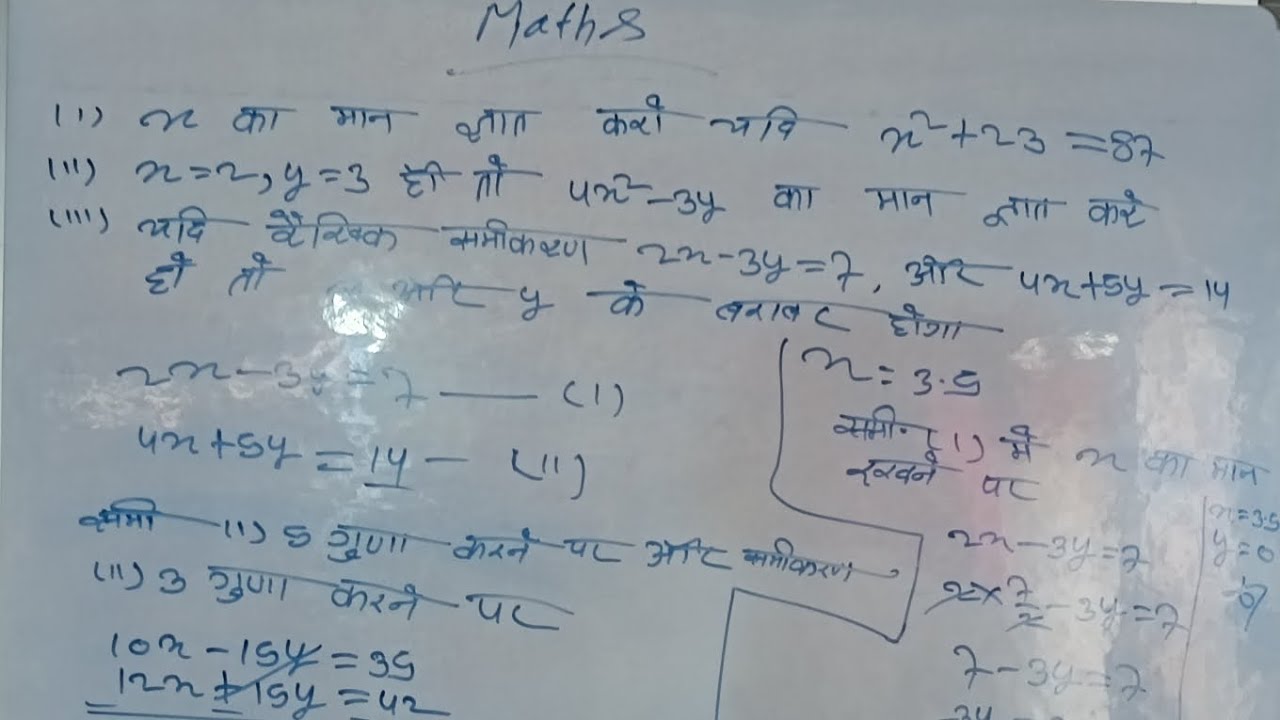 Maths
(I) x का मान ज्ञात करो यदि x²+23=87
(II) x=2, y=3 हो तो 4x²-3y का मान ज्ञात करे
(III) यदि रैखिक समीकरण 2x-3y=7, और 4x+5y=14
हो तो और y के बराबर होगा
2x-3y=7 — (I)
4x+5y=14 — (II)
समी (I) 5 गुणा करने पर और समीकरण
(II) 3 गुणा करने पर
10x-15y=35
12x+15y=42
x=3.5
समी. (I) में x का मान
रखने पर
2x-3y=7
2×7/2-3y=7
7-3y=7
x=3.5
y=0